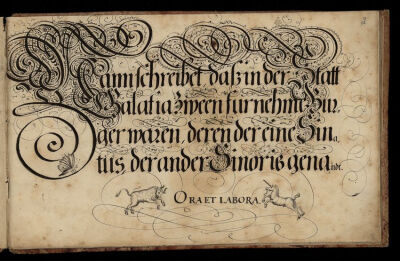 Mann schreibet daß in der Statt
Galatia zween fürnehme Bur-
ger waren, deren der eine Sina-
tus der ander Sinoris genandt.
ORA ET LABORA.